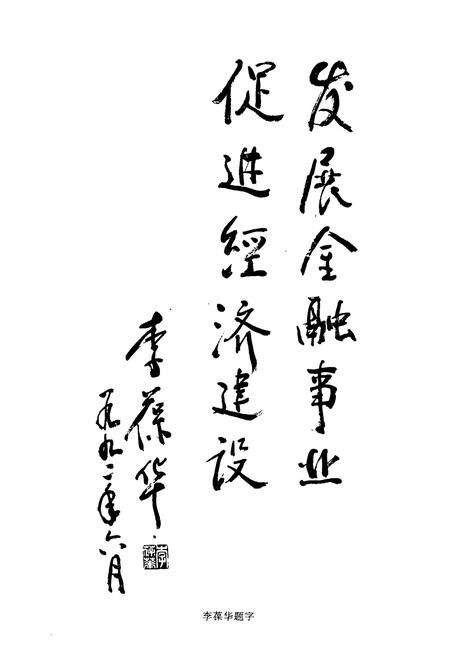 发展金融事业
促进經济建设
李葆华
一九九二年六月
李葆华
李葆华题字